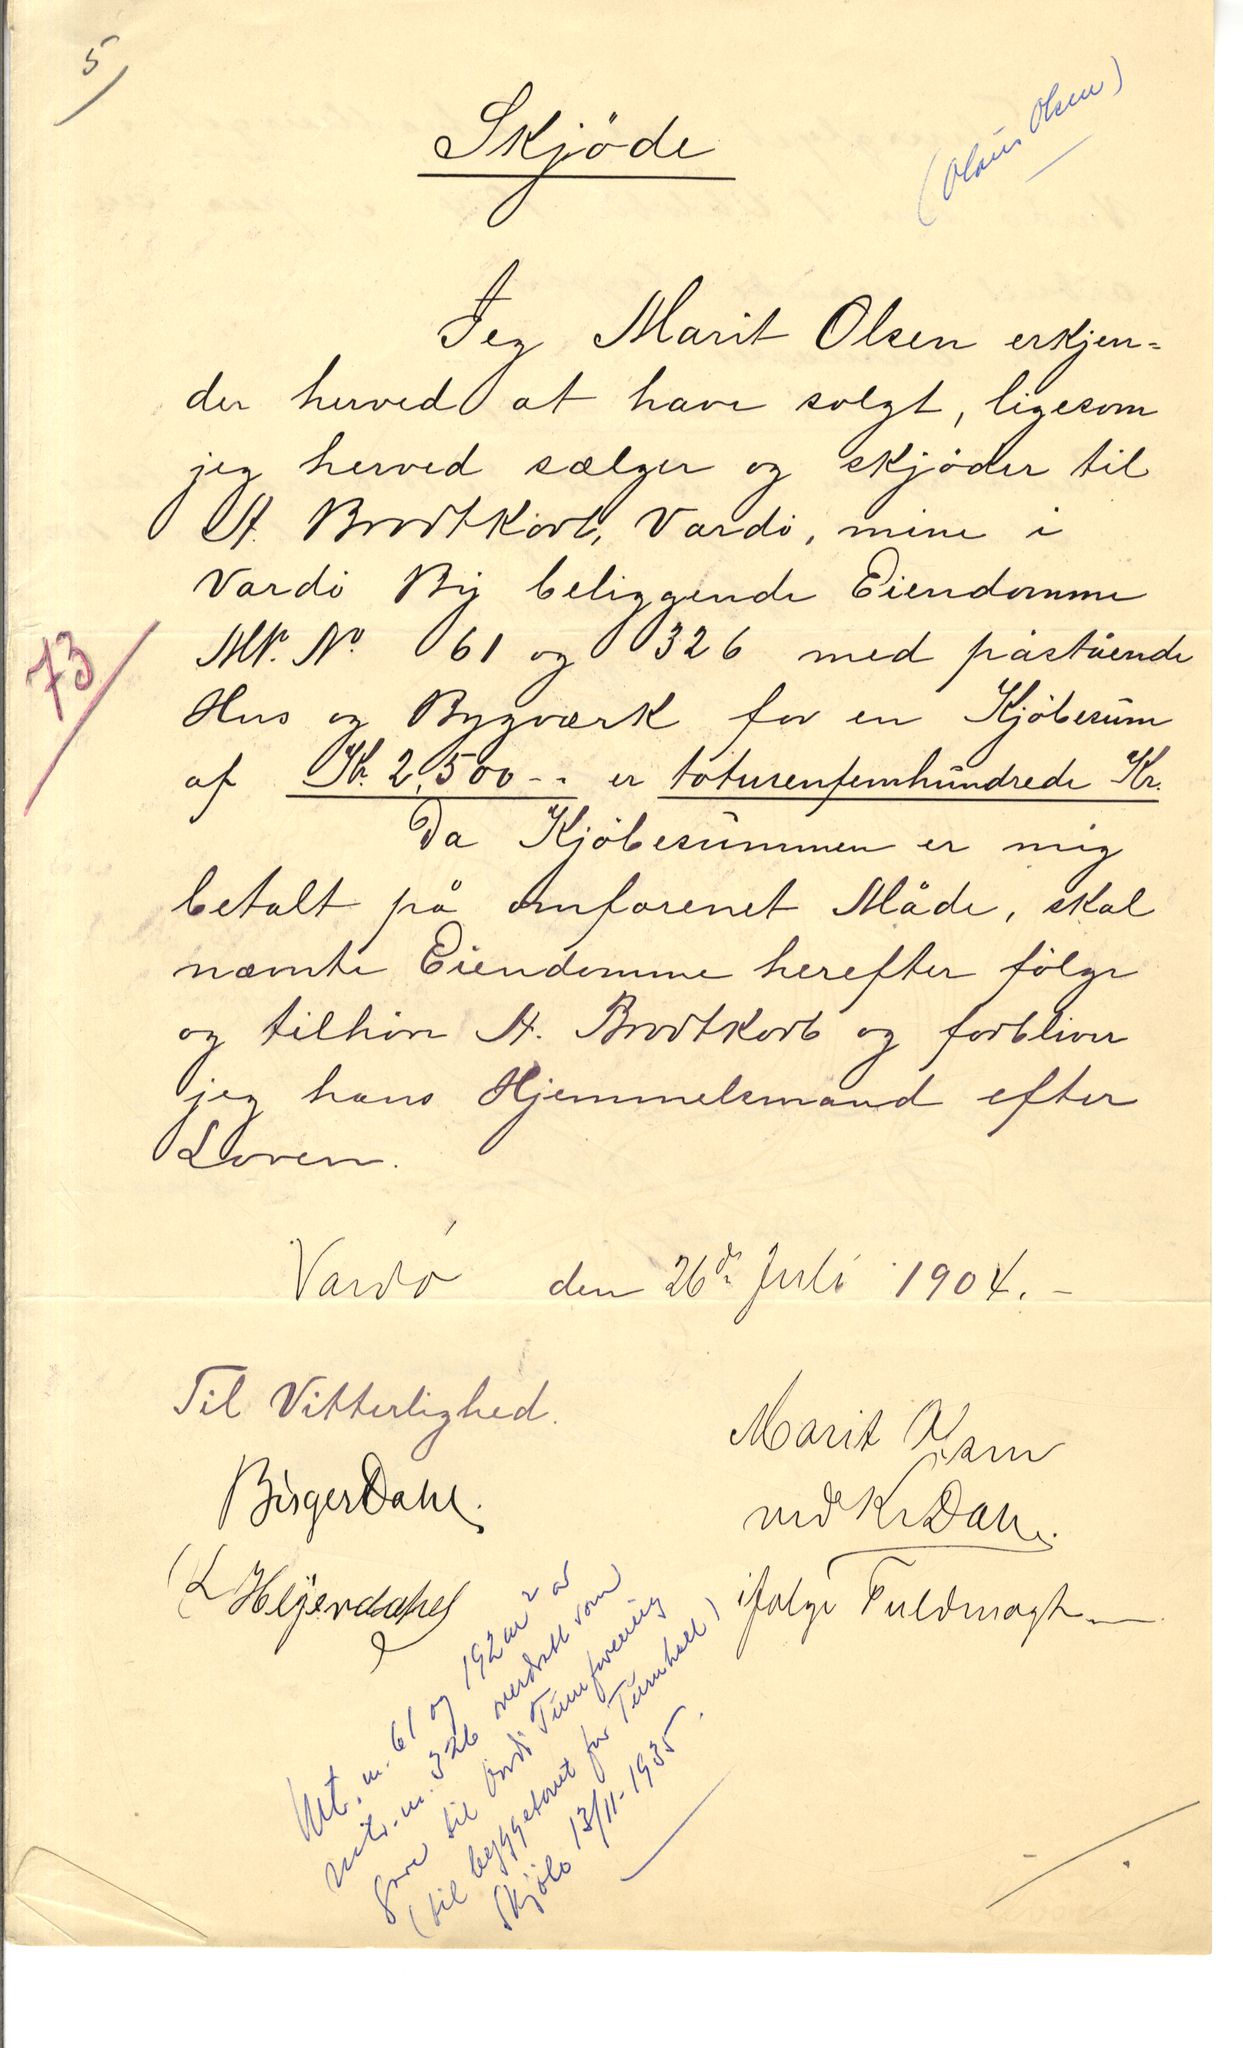 5
(Olaus Olsen)
Skjöde
Jeg Marit Olsen erkjen=
der herved at have solgt, ligesom
jeg herved sælger og skjöder til
A. Brodtkorb, Vardö, mine i
Vardö By beliggende Eiendomme
Mt. No 61 og 326 med påstående
Hus og Bygværk for en Kjöbesum
af Kr. 2,500-- er totusenfemhundrede Kr.
Da Kjöbesummen er mig
betalt på omforenet Måde, skal
nævnte Eiendomme herefter fölge
og tilhöre A. Brodtkorb og forbliver
jeg hans Hjemmelsmand efter
Loven.
73
Vardö den 26de Juli 1904.-
Til Vitterlighed.
Birger Dahl.
L Heyerdahl
Marit Olsen
ved Kr Dahl.
ifølge Fuldmagt
Mtr. nr. 61 og 192 m² av
mtr. nr. 326 overdratt som
gave til Vardö Turnforening
(til byggetomt for Turnhall)
Skjöte 13/11-1935.